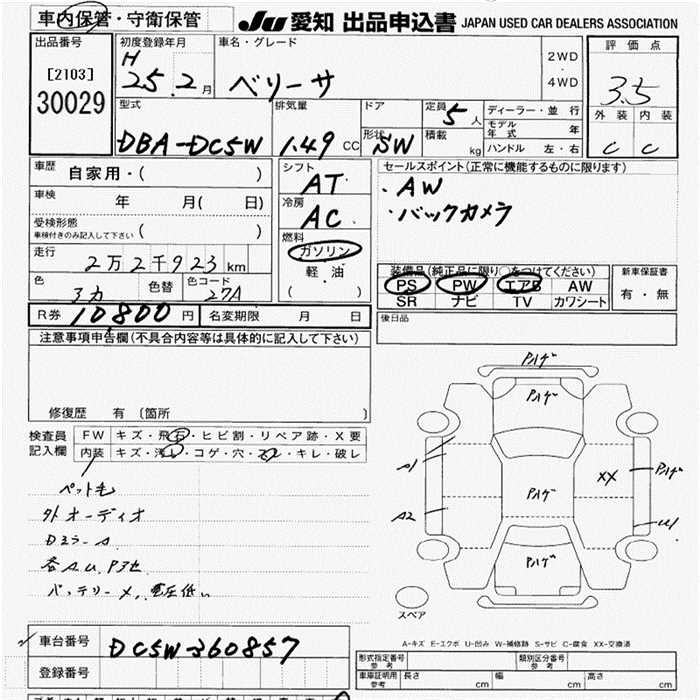 車内保管・守衛保管 JU 愛知 出品申込書 JAPAN USED CAR DEALERS ASSOCIATION
出品番号 初度登録年月 車名・グレード 評価点
[2103] H 25.2月 ベリーサ 2WD ・ 4WD 3.5
30029
型式 排気量 ドア 定員 5人 ディーラー・並行 外装 内装
モデル年式 年
DBA-DC5W 1.49 CC 形状 SW 積載 kg ハンドル 左・右 C C
車歴 自家用・( ) シフト AT セールスポイント(正常に機能するものに限ります)
車検 年 月( 日) 冷房 AC ・AW
受検形態 ・バックカメラ
車検付きのみ記入して下さい ( )
燃料 ガソリン
走行 2万2千923km 軽・油 装備品(純正品に限り○をつけてください) 新車保証書
色 3カ 色替 色コード 27A ( ) PS PW エアB AW 有・無
SR ナビ TV カワシート
R券 10800円 名変期限 月 日 後日品
注意事項申告欄(不具合内容等は具体的に記入して下さい)
修復歴 有 (箇所 )
検査員 FW キズ・飛石・ヒビ割・リペア跡・X要
記入欄 内装 キズ・汚れ・コゲ・穴・スレ・キレ・破レ
ペット毛
外オーディオ
Dミラー A
各A.U.P3セ
バッテリーメ、電圧低い
Pハゲ
Pハゲ
A1 XX Pハゲ
Pハゲ
A2 U1
Pハゲ
スペア
A-キズ E-エクボ U-凹み W-補修跡 S-サビ C-腐食 XX-交換済
車台番号 DC5W-360857
登録番号
形式指定番号 参考 類別区分番号 参考
車庫証明用 参考 長さ cm 幅 cm 高さ cm